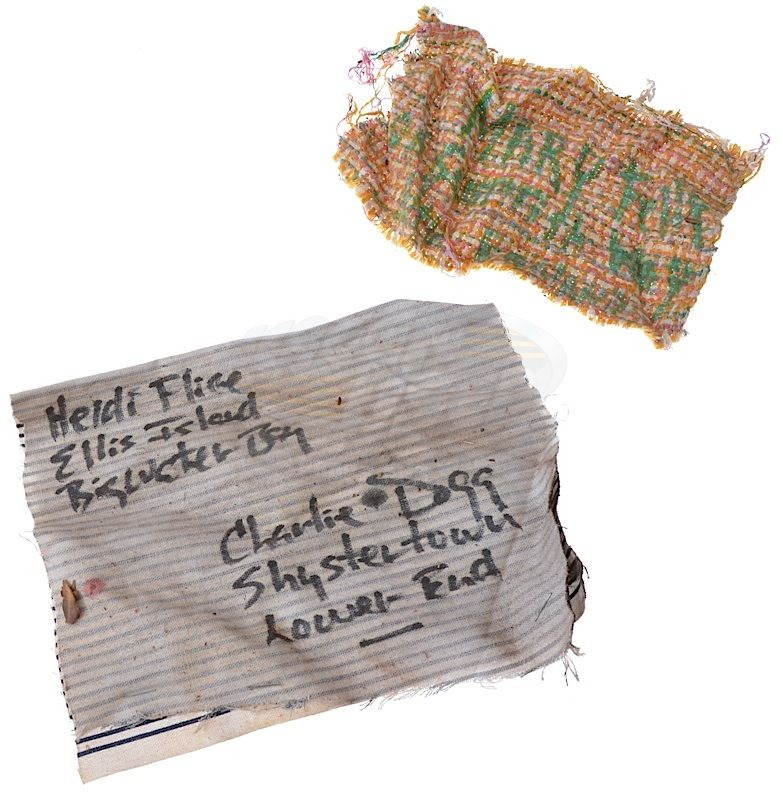 Heidi Flice
Ellis Island
Bigwater Bay
Charlie Dogg
Shystertown
Lower End